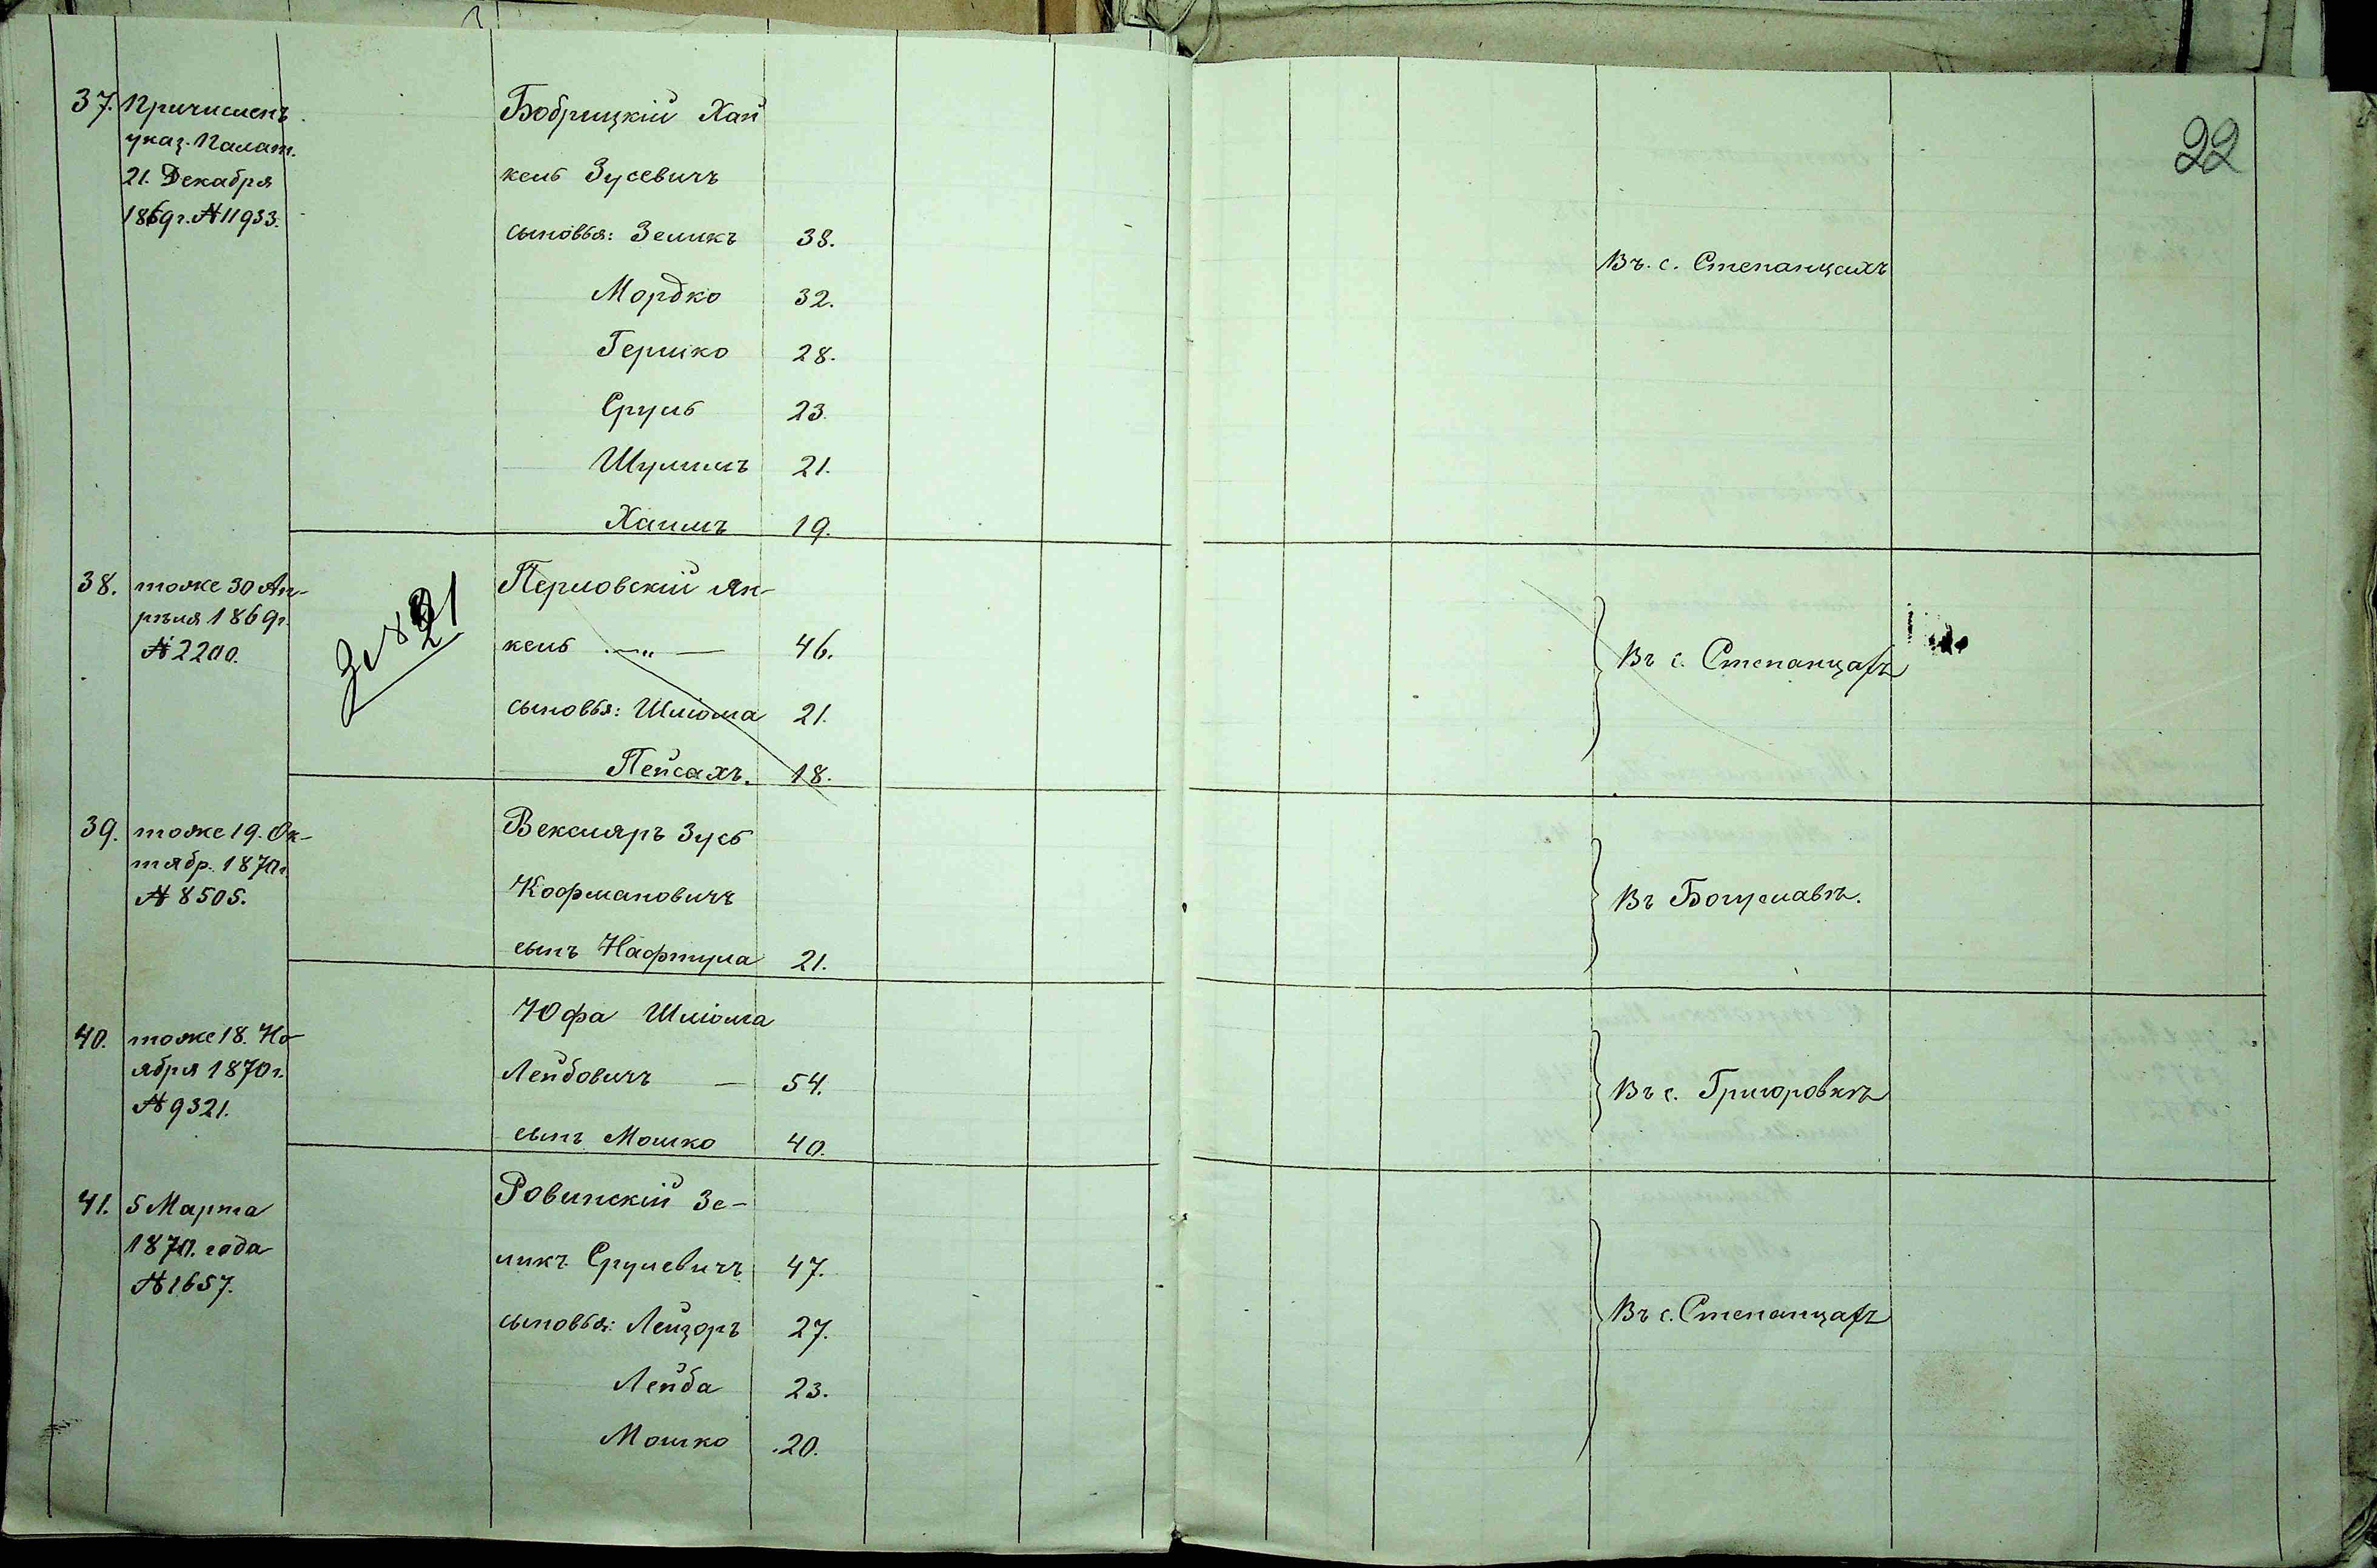 22
37. Причисленъ Бобрицкій Хай
указ. Палат.
21. Декабря кель Зусевичъ
1869 г. № 11933.
сыновья: Зеликъ 38. Въ. с. Степанцахъ
Мордко 32.
Гершко 28.
Сруль 23.
Шулимъ 21.
Хаимъ 19.
38. тоже 30 Ап- Перловскій Ян-
рѣля 1869 г.
№ 2200. кель —„— 46. Въ с. Степанцахъ
сыновья: Шлiома 21.
Пейсахъ. 18.
39. тоже 19. Ок- Векслярь Зусь
тябр. 1870 г.
№ 8505. Кофмановичъ Въ Богуславѣ.
сынъ Нафтула 21.
40. тоже 18. Но- Юфа Шлiома
ября 1870 г. Лейбовичъ — 54. Въ с. Григоровкѣ
№ 9321.
сынъ Мошко 40.
41. 5 Марта Ровинскій Зе-
1870. года
№ 1657. ликъ Срулевичъ 47.
сыновья: Лейзоръ 27. Въ с. Степанцахъ
Лейба 23.
Мошко 20.